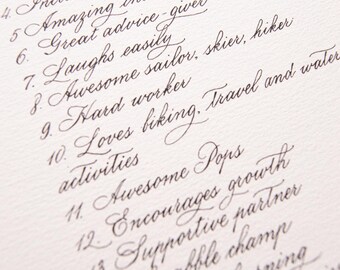 4.
5 Amazing
6. Great advice-giver
7. Laughs easily
8. Awesome sailor, skier, hiker
9. Hard worker
10. Loves biking, travel and water
activities
11. Awesome Pops
12. Encourages growth
13 Supportive partner
champ